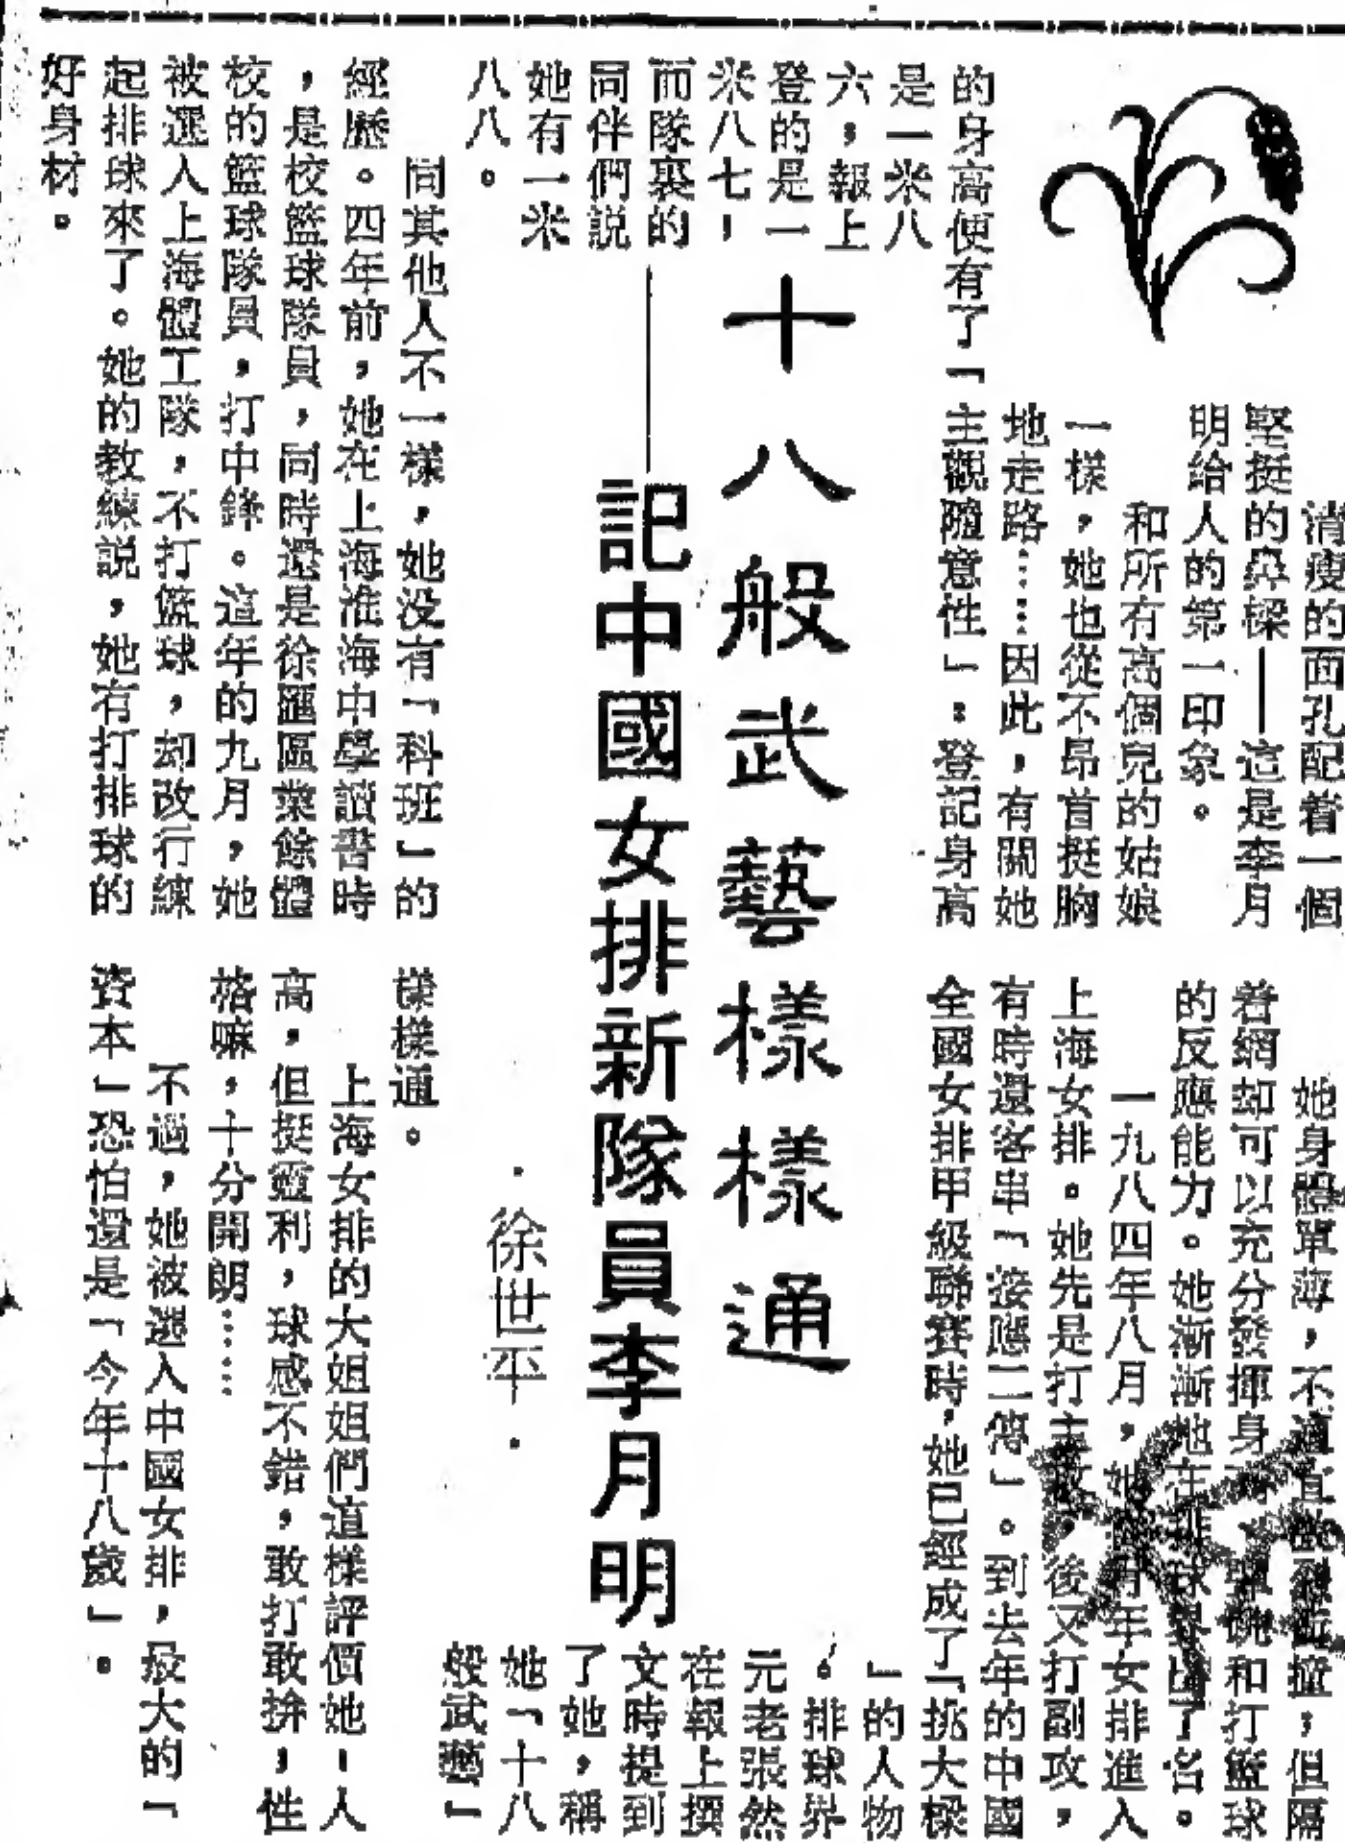 十八般武藝樣樣通
——記中國女排新隊員李月明
·徐世平·
消瘦的面孔配着一個
堅挺的鼻樑——這是李月
明給人的第一印象。
和所有高個兒的姑娘
一樣，她也從不昂首挺胸
地走路……因此，有關她
的身高便有了「主觀隨意性」：登記身高
是一米八
六，報上
登的是一
米八七，
而隊裏的
同伴們説
她有一米
八八。
同其他人不一樣，她没有「科班」的
經歷。四年前，她在上海淮海中學讀書時
，是校籃球隊員，同時還是徐匯區業餘體
校的籃球隊員，打中鋒。這年的九月，她
被選入上海體工隊，不打籃球，却改行練
起排球來了。她的教練説，她有打排球的
好身材。
她身體單薄，不適宜衝撞，但隔
着網却可以充分發揮身和打籃球
的反應能力。她漸漸地在排球界出了名。
一九八四年八月，她青年女排進入
上海女排。她先是打主攻，後又打副攻，
有時還客串「接應二傳」。到去年的中國
全國女排甲級聯賽時，她已經成了「挑大樑
」的人物
。排球界
元老張然
在報上撰
文時提到
了她，稱
她「十八
般武藝」
樣樣通。
上海女排的大姐姐們這樣評價她：人
高，但挺靈利，球感不錯，敢打敢拚，性
格嘛，十分開朗……
不過，她被選入中國女排，最大的「
資本」恐怕還是「今年十八歲」。